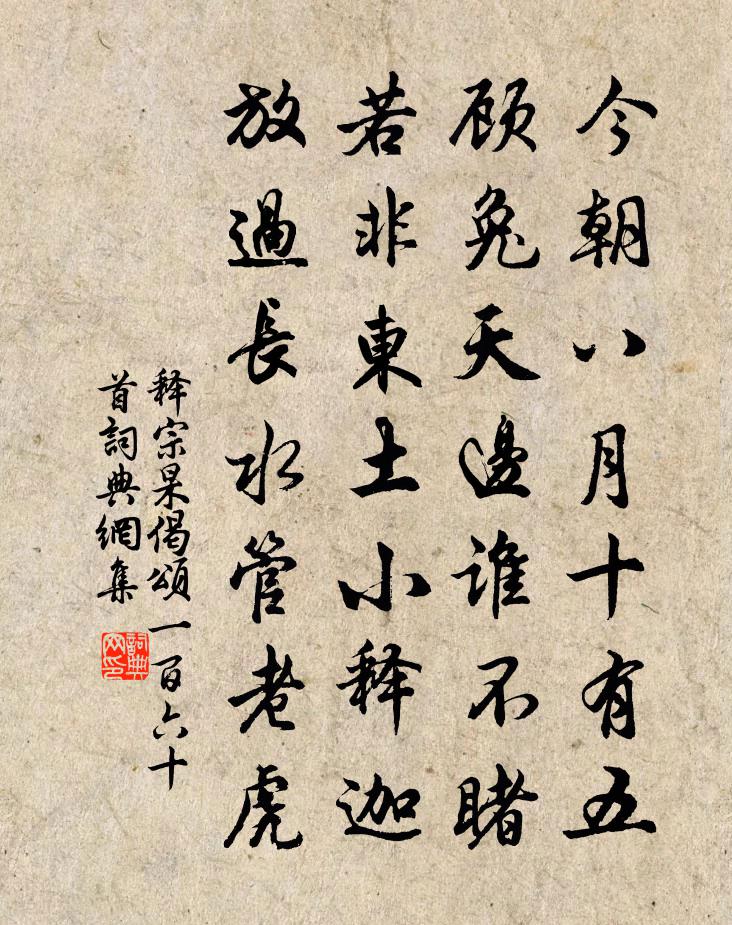 今朝八月十有五
顾兔天邊谁不睹
若非東土小释迦
放過長水管老虎
释宗杲偈頌一百六十
首詞典網集
詞典网印